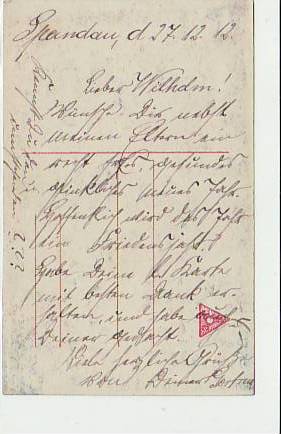 Spandau, d 27.12.12.
Lieber Wilhelm!
Wünsche Dir nebst
meinen Eltern ein
recht frohes, gesundes
glückliches neues Jahr.
Hoffentlich wird das Jahr
ein Friedensjahr!
Habe Deine l. Karte
mit besten Dank er-
halten, und habe auch
Deiner gedacht.
Viele herzliche Grüße
von Deinem